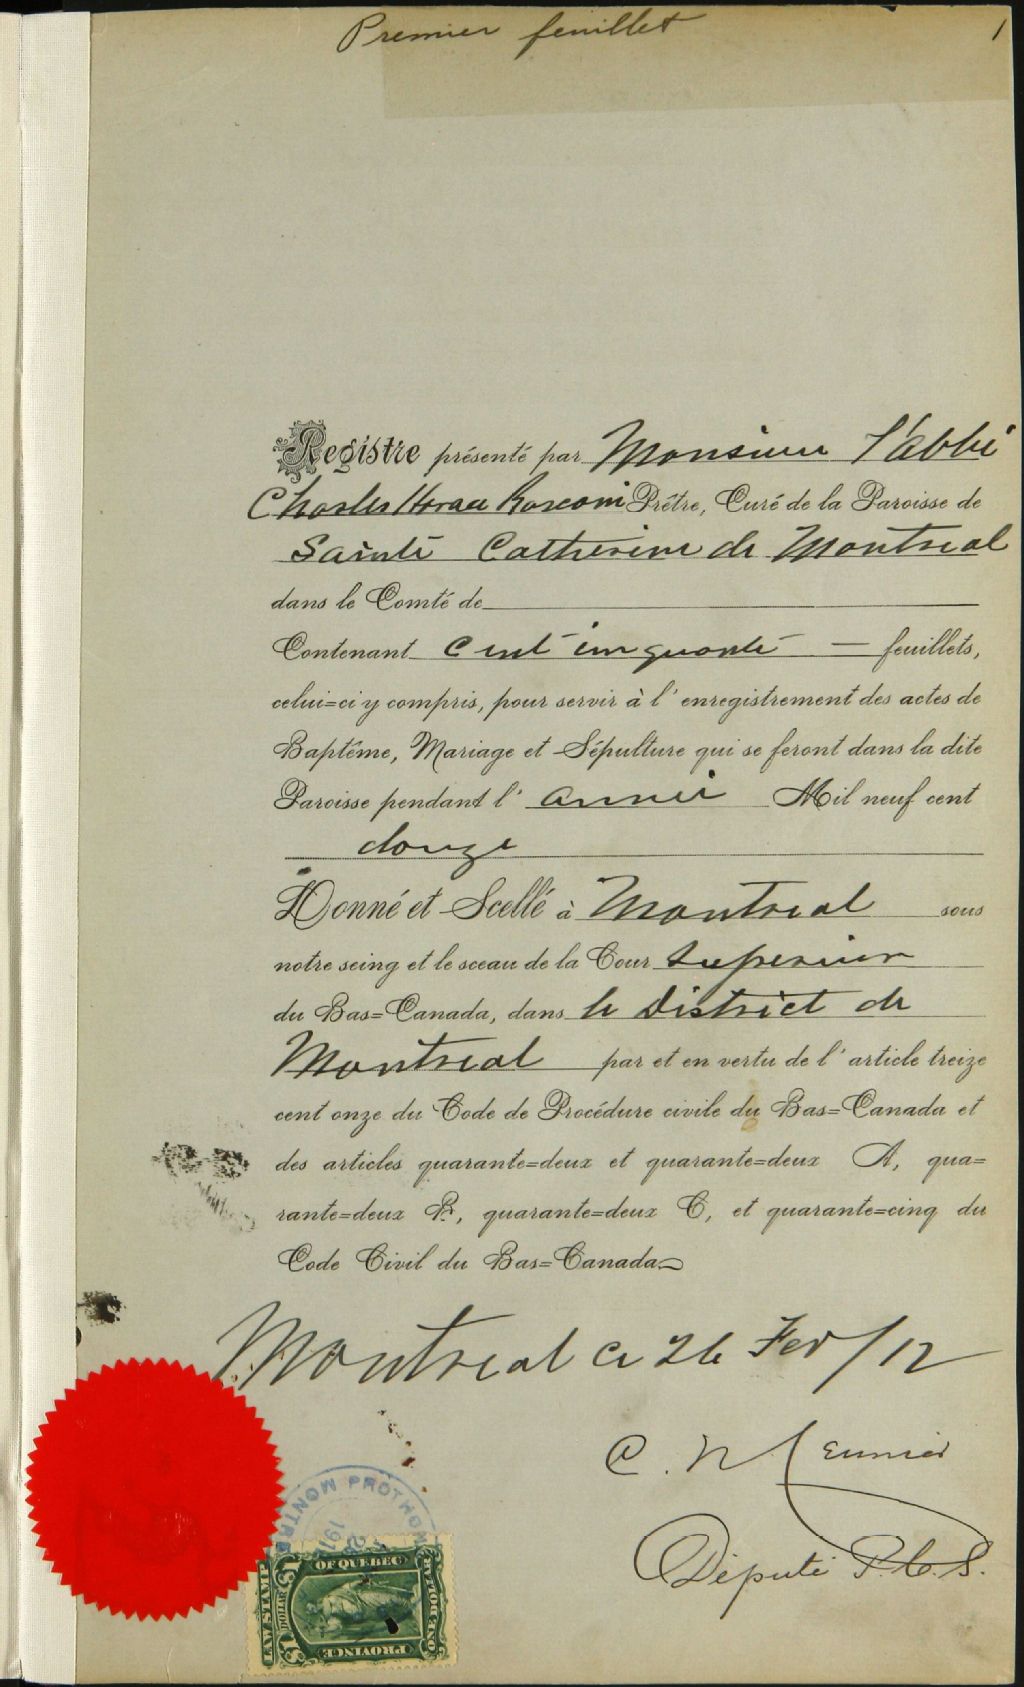 Premier feuillet 1
Registre présenté par Monsieur l'abbé
Charles Horace Rosconi Prêtre, Curé de la Paroisse de
Sainte Catherine de Montreal
dans le Comté de
Contenant Cent cinquante — feuillets,
celui=ci y compris, pour servir à l'enregistrement des actes de
Baptême, Mariage et Sépulture qui se feront dans la dite
Paroisse pendant l'année Mil neuf cent
douze
Donné et Scellé à Montreal sous
notre seing et le sceau de la Cour Superieure
du Bas=Canada, dans le District de
Montreal par et en vertu de l'article treize
cent onze du Code de Procédure civile du Bas=Canada et
des articles quarante=deux et quarante=deux A, qua=
rante=deux B, quarante=deux C, et quarante=cinq du
Code Civil du Bas=Canada
Montreal ce 26 Fev/12
C. Meunier
Député P.C.S.
PROTHON
MONTRE
191
LAW STAMP
OF QUEBEC
PROVINCE
ONE DOLLAR
$1 DOLLAR $1